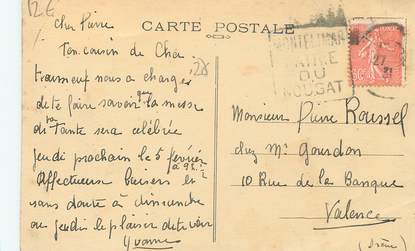 12€
CARTE POSTALE
MONTELIMAR
SON
NOUGAT
Cher Pierre
Ton cousin de Cha
teauneuf nous a chargés
de te faire savoir que la messe
de ta Tante sera célébrée
jeudi prochain le 5 février
à 9h.½
Affectueux baisers et
sans doute à dimanche
ou jeudi le plaisir de te voir
Yvonne
Monsieur Pierre Roussel
chez Mr Gourdon
10 Rue de la Banque
Valence
(Drôme)